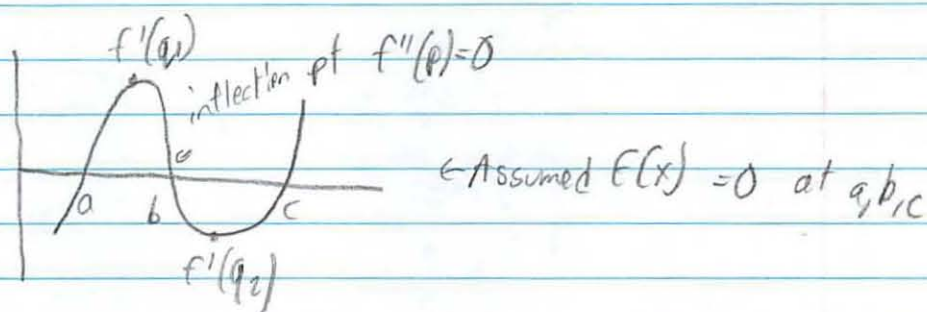 f'(q1)
inflection pt f''(p)=0
←Assumed f(x) =0 at a,b,c
a
b
c
f'(q2)